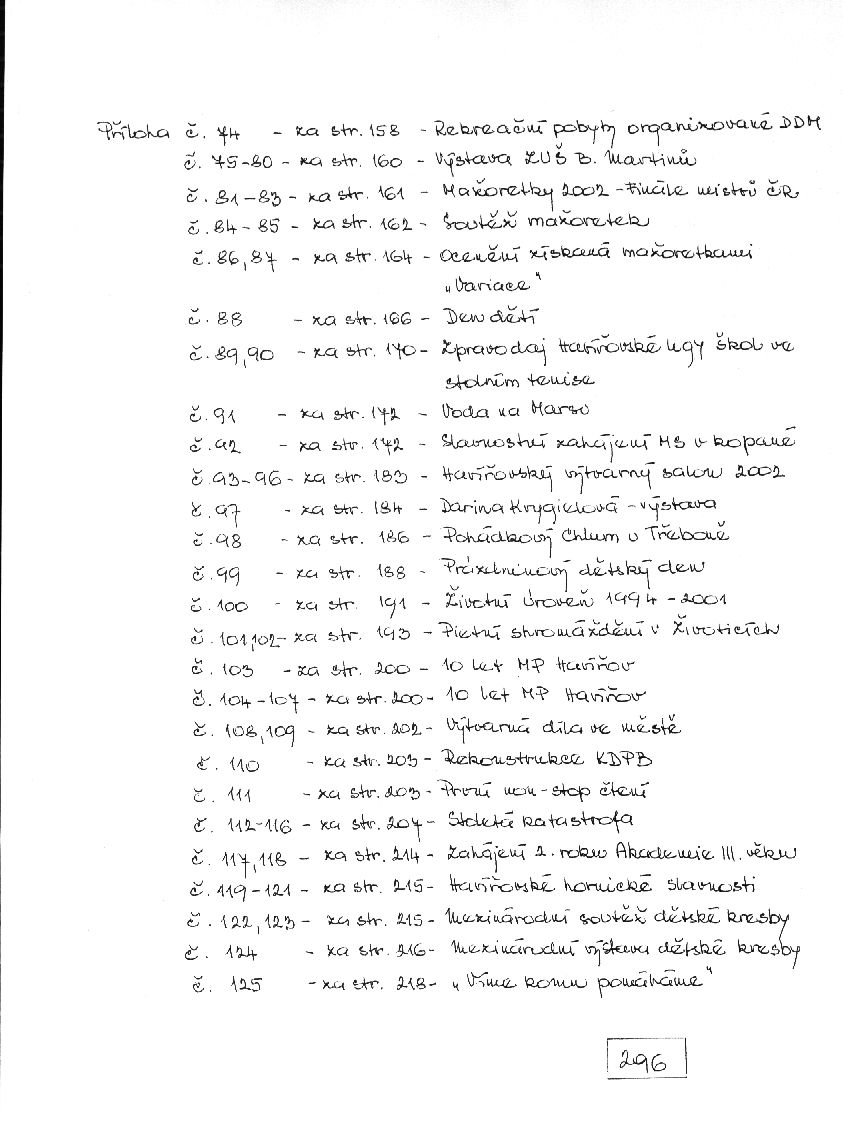 Příloha č. 74 - za str. 158 - Rekreační pobyty organizované DDM
č. 75-80 - za str. 160 - Výstava ZUŠ B. Martinů
č. 81-83 - za str. 161 - Mažoretky 2002 - Finále mistrů ČR
č. 84-85 - za str. 162 - Soutěž mažoretek
č. 86,87 - za str. 164 - Ocenění získaná mažoretkami
„Variace“
č. 88 - za str. 166 - Den dětí
č. 89,90 - za str. 170 - Zpravodaj Havířovské ligy škol ve
stolním tenise
č. 91 - za str. 172 - Voda na Marsu
č. 92 - za str. 172 - Slavnostní zahájení MS v kopané
č. 93-96 - za str. 183 - Havířovský výtvarný salon 2002
č. 97 - za str. 184 - Darina Krygielová - výstava
č. 98 - za str. 186 - Pohádkový Chlum u Třeboně
č. 99 - za str. 188 - Prázdninový dětský den
č. 100 - za str. 191 - Životní úroveň 1994 - 2001
č. 101,102 - za str. 193 - Pietní shromáždění v Životicích
č. 103 - za str. 200 - 10 let MP Havířov
č. 104-107 - za str. 200 - 10 let MP Havířov
č. 108,109 - za str. 202 - Výtvarná díla ve městě
č. 110 - za str. 203 - Rekonstrukce KDPB
č. 111 - za str. 203 - První non-stop čtení
č. 112-116 - za str. 207 - Stoletá katastrofa
č. 117,118 - za str. 214 - Zahájení 2. roku Akademie III. věku
č. 119-121 - za str. 215 - Havířovské hornické slavnosti
č. 122,123 - za str. 215 - Mezinárodní soutěž dětské kresby
č. 124 - za str. 216 - Mezinárodní výstava dětské kresby
č. 125 - za str. 218 - „Víme komu pomáháme“
296